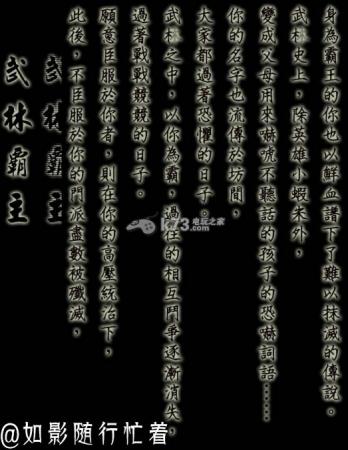 身為霸王的你也以鮮血譜下了難以抹滅的傳說。
武林史上，除英雄小蝦米外，
變成父母用來嚇唬不聽話的孩子的恐嚇詞語……
你的名字也流傳於坊間，
大家都過著恐懼的日子。
武林之中，以你為霸，過往的相互鬥爭逐漸消失，
過著戰戰競競的日子。
願意臣服於你者，則在你的高壓統治下，
此後，不臣服於你的門派盡數被殲滅，
武林霸主
武林霸主
k73 电玩之家
.com
@如影随行忙着